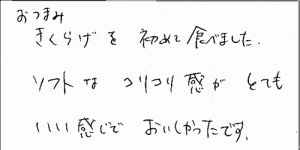 おつまみ
きくらげを 初めて 食べました.
ソフトな コリコリ感が とても
いいい感じで おいしかったです.